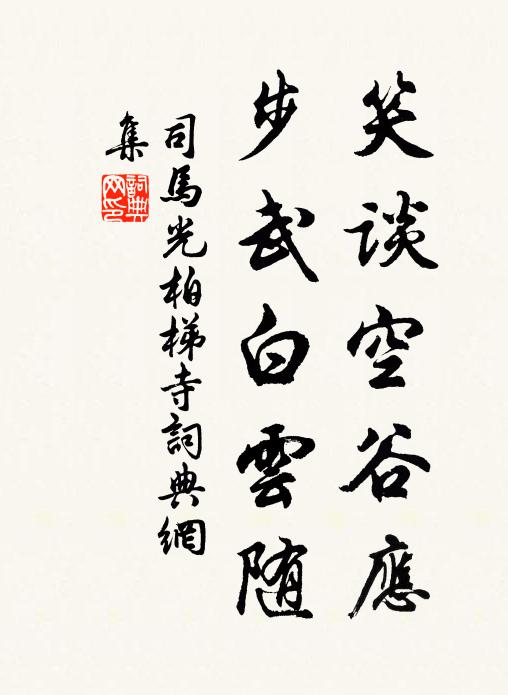 笑谈空谷應
步武白雲随
司馬光柏梯寺詞典網
集
詞典
网印